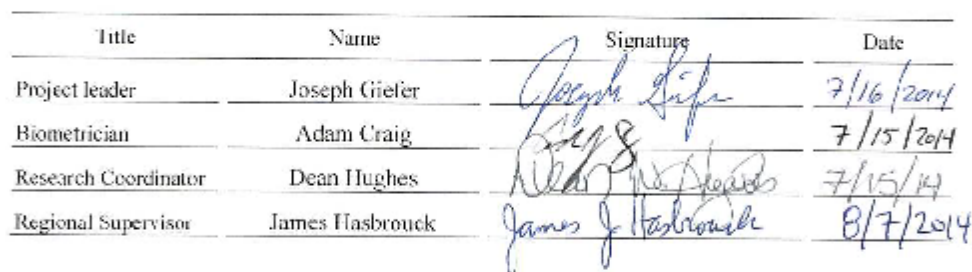 Title Name Signature Date
Project leader Joseph Giefer Joseph Giefer 7/16/2014
Biometrician Adam Craig 7/15/2014
Research Coordinator Dean Hughes Dean W. Hughes 7/15/14
Regional Supervisor James Hasbrouck James J Hasbrouck 8/7/2014